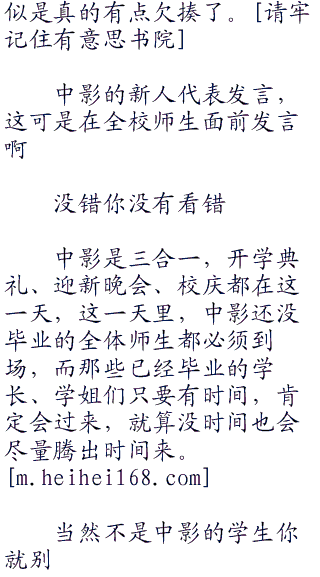 似是真的有点欠揍了。[请牢
记住有意思书院]
中影的新人代表发言，
这可是在全校师生面前发言
啊
没错你没有看错
中影是三合一，开学典
礼、迎新晚会、校庆都在这
一天，这一天里，中影还没
毕业的全体师生都必须到
场，而那些已经毕业的学
长、学姐们只要有时间，肯
定会过来，就算没时间也会
尽量腾出时间来。
[m.heihei168.com]
当然不是中影的学生你
就别